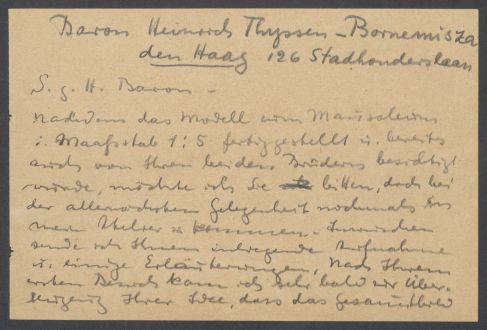 Baron Heinrich Thyssen-Bornemisza
den Haag 126 Stadhonderslaan
S. g. H. Baron -
nachdem das Modell vom Mausoleum
i. Maafsstab 1:5 fertiggestellt u. bereits
auch von Ihren beiden Brüdern besichtigt
wurde, möchte ich Sie bitten, doch bei
der allernächsten Gelegenheit nochmals in
mein Atelier z. kommen. Inzwischen
sende ich Ihnen inliegende Aufnahme
u. einige Erläuterungen. Nach Ihrem
ersten Besuch kam ich sehr bald zur Über-
zeugung Ihrer Idee, dass das Gesamtbild